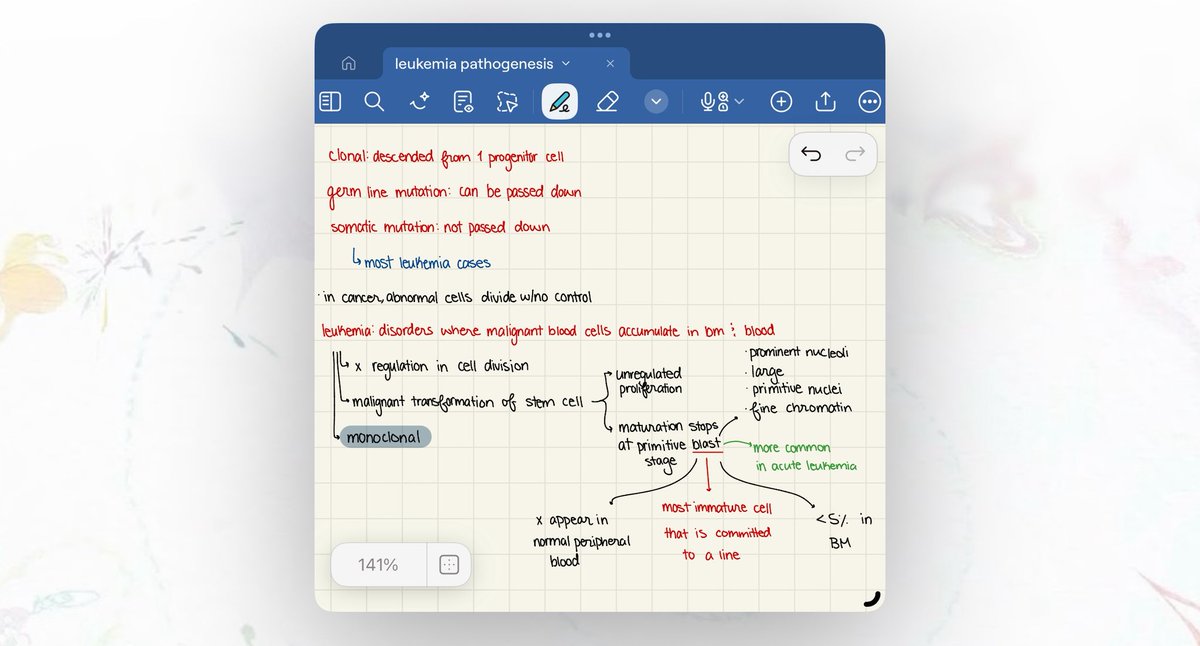 leukemia pathogenesis
clonal: descended from 1 progenitor cell
germ line mutation: can be passed down
somatic mutation: not passed down
most leukemia cases
· in cancer, abnormal cells divide w/no control
leukemia: disorders where malignant blood cells accumulate in bm & blood
x regulation in cell division
malignant transformation of stem cell
monoclonal
unregulated
proliferation
maturation stops
at primitive blast
stage
· prominent nucleoli
· large
· primitive nuclei
· fine chromatin
more common
in acute leukemia
x appear in
normal peripheral
blood
most immature cell
that is committed
to a line
<5% in
BM
141%